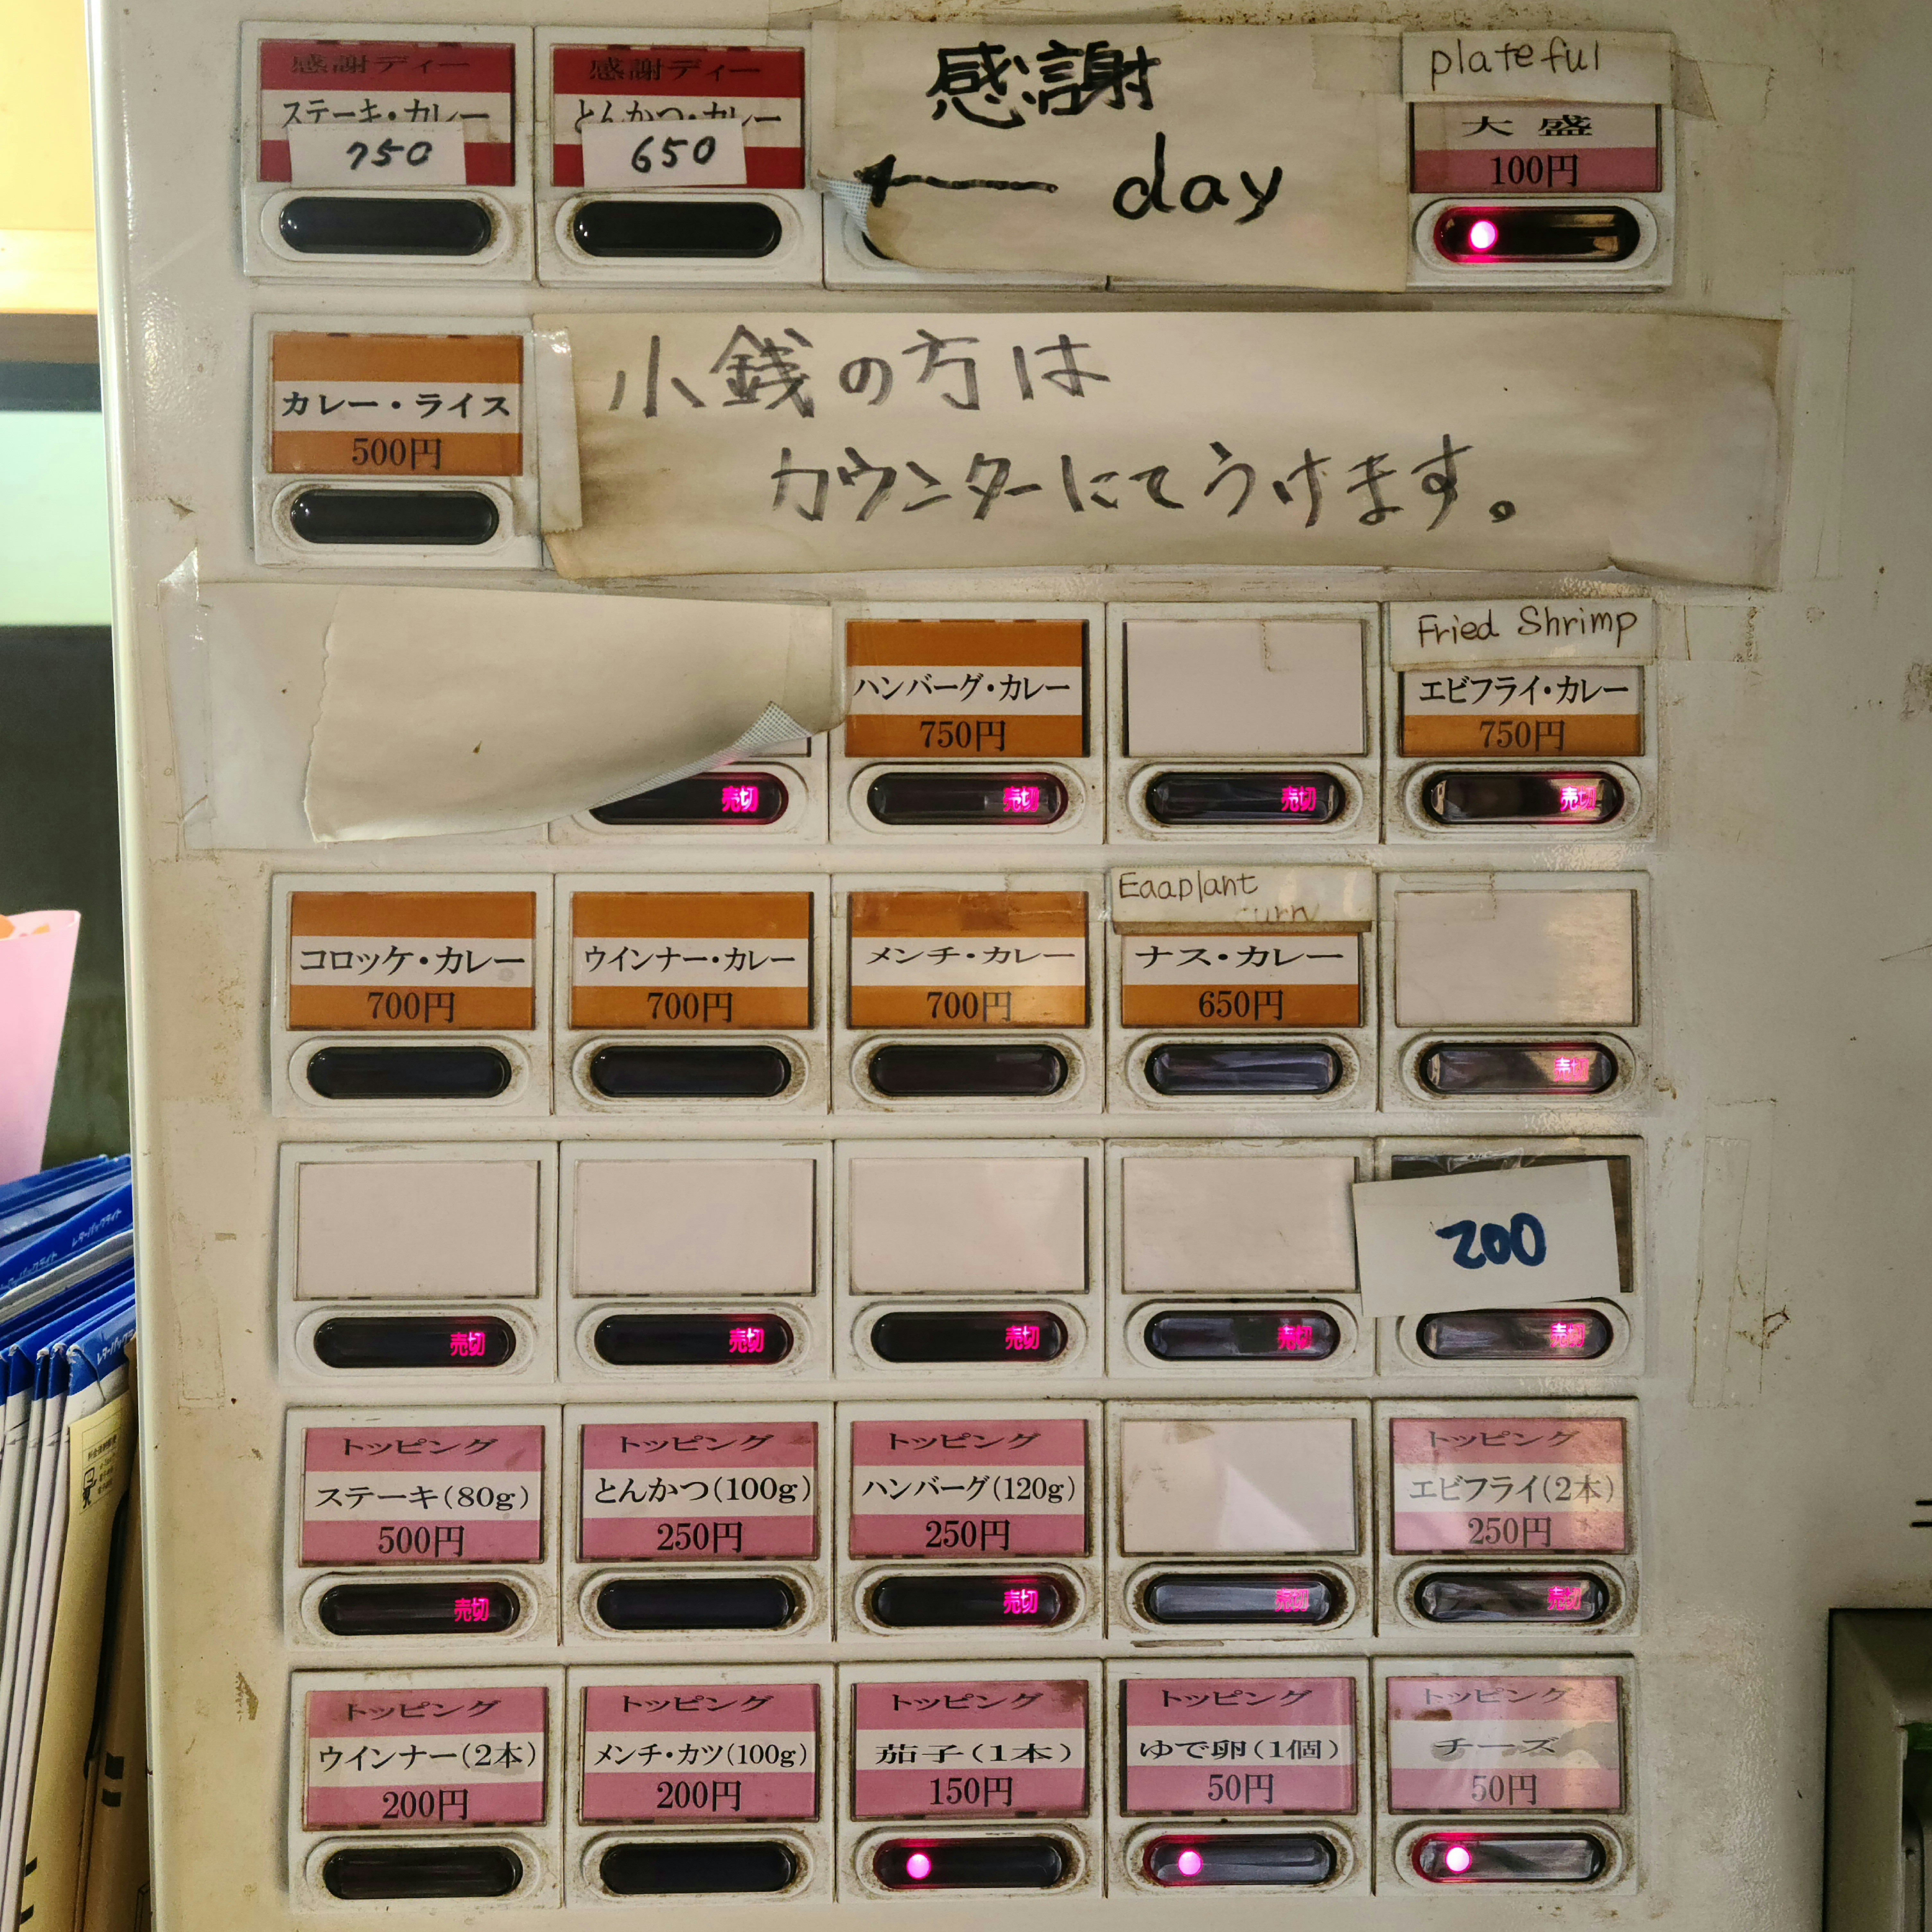 感謝ディー
ステーキ・カレー
750
感謝ディー
とんかつ・カレー
650
感謝
← day
plateful
大盛
100円
カレー・ライス
500円
小銭の方は
カウンターにてうけます。
売切
ハンバーグ・カレー
750円
売切
売切
Fried Shrimp
エビフライ・カレー
750円
売切
コロッケ・カレー
700円
ウインナー・カレー
700円
メンチ・カレー
700円
Eggplant
curry
ナス・カレー
650円
売切
売切
売切
売切
売切
200
売切
トッピング
ステーキ(80g)
500円
売切
トッピング
とんかつ(100g)
250円
トッピング
ハンバーグ(120g)
250円
売切
売切
トッピング
エビフライ(2本)
250円
売切
トッピング
ウインナー(2本)
200円
トッピング
メンチ・カツ(100g)
200円
トッピング
茄子(1本)
150円
トッピング
ゆで卵(1個)
50円
トッピング
チーズ
50円
レターパックライト